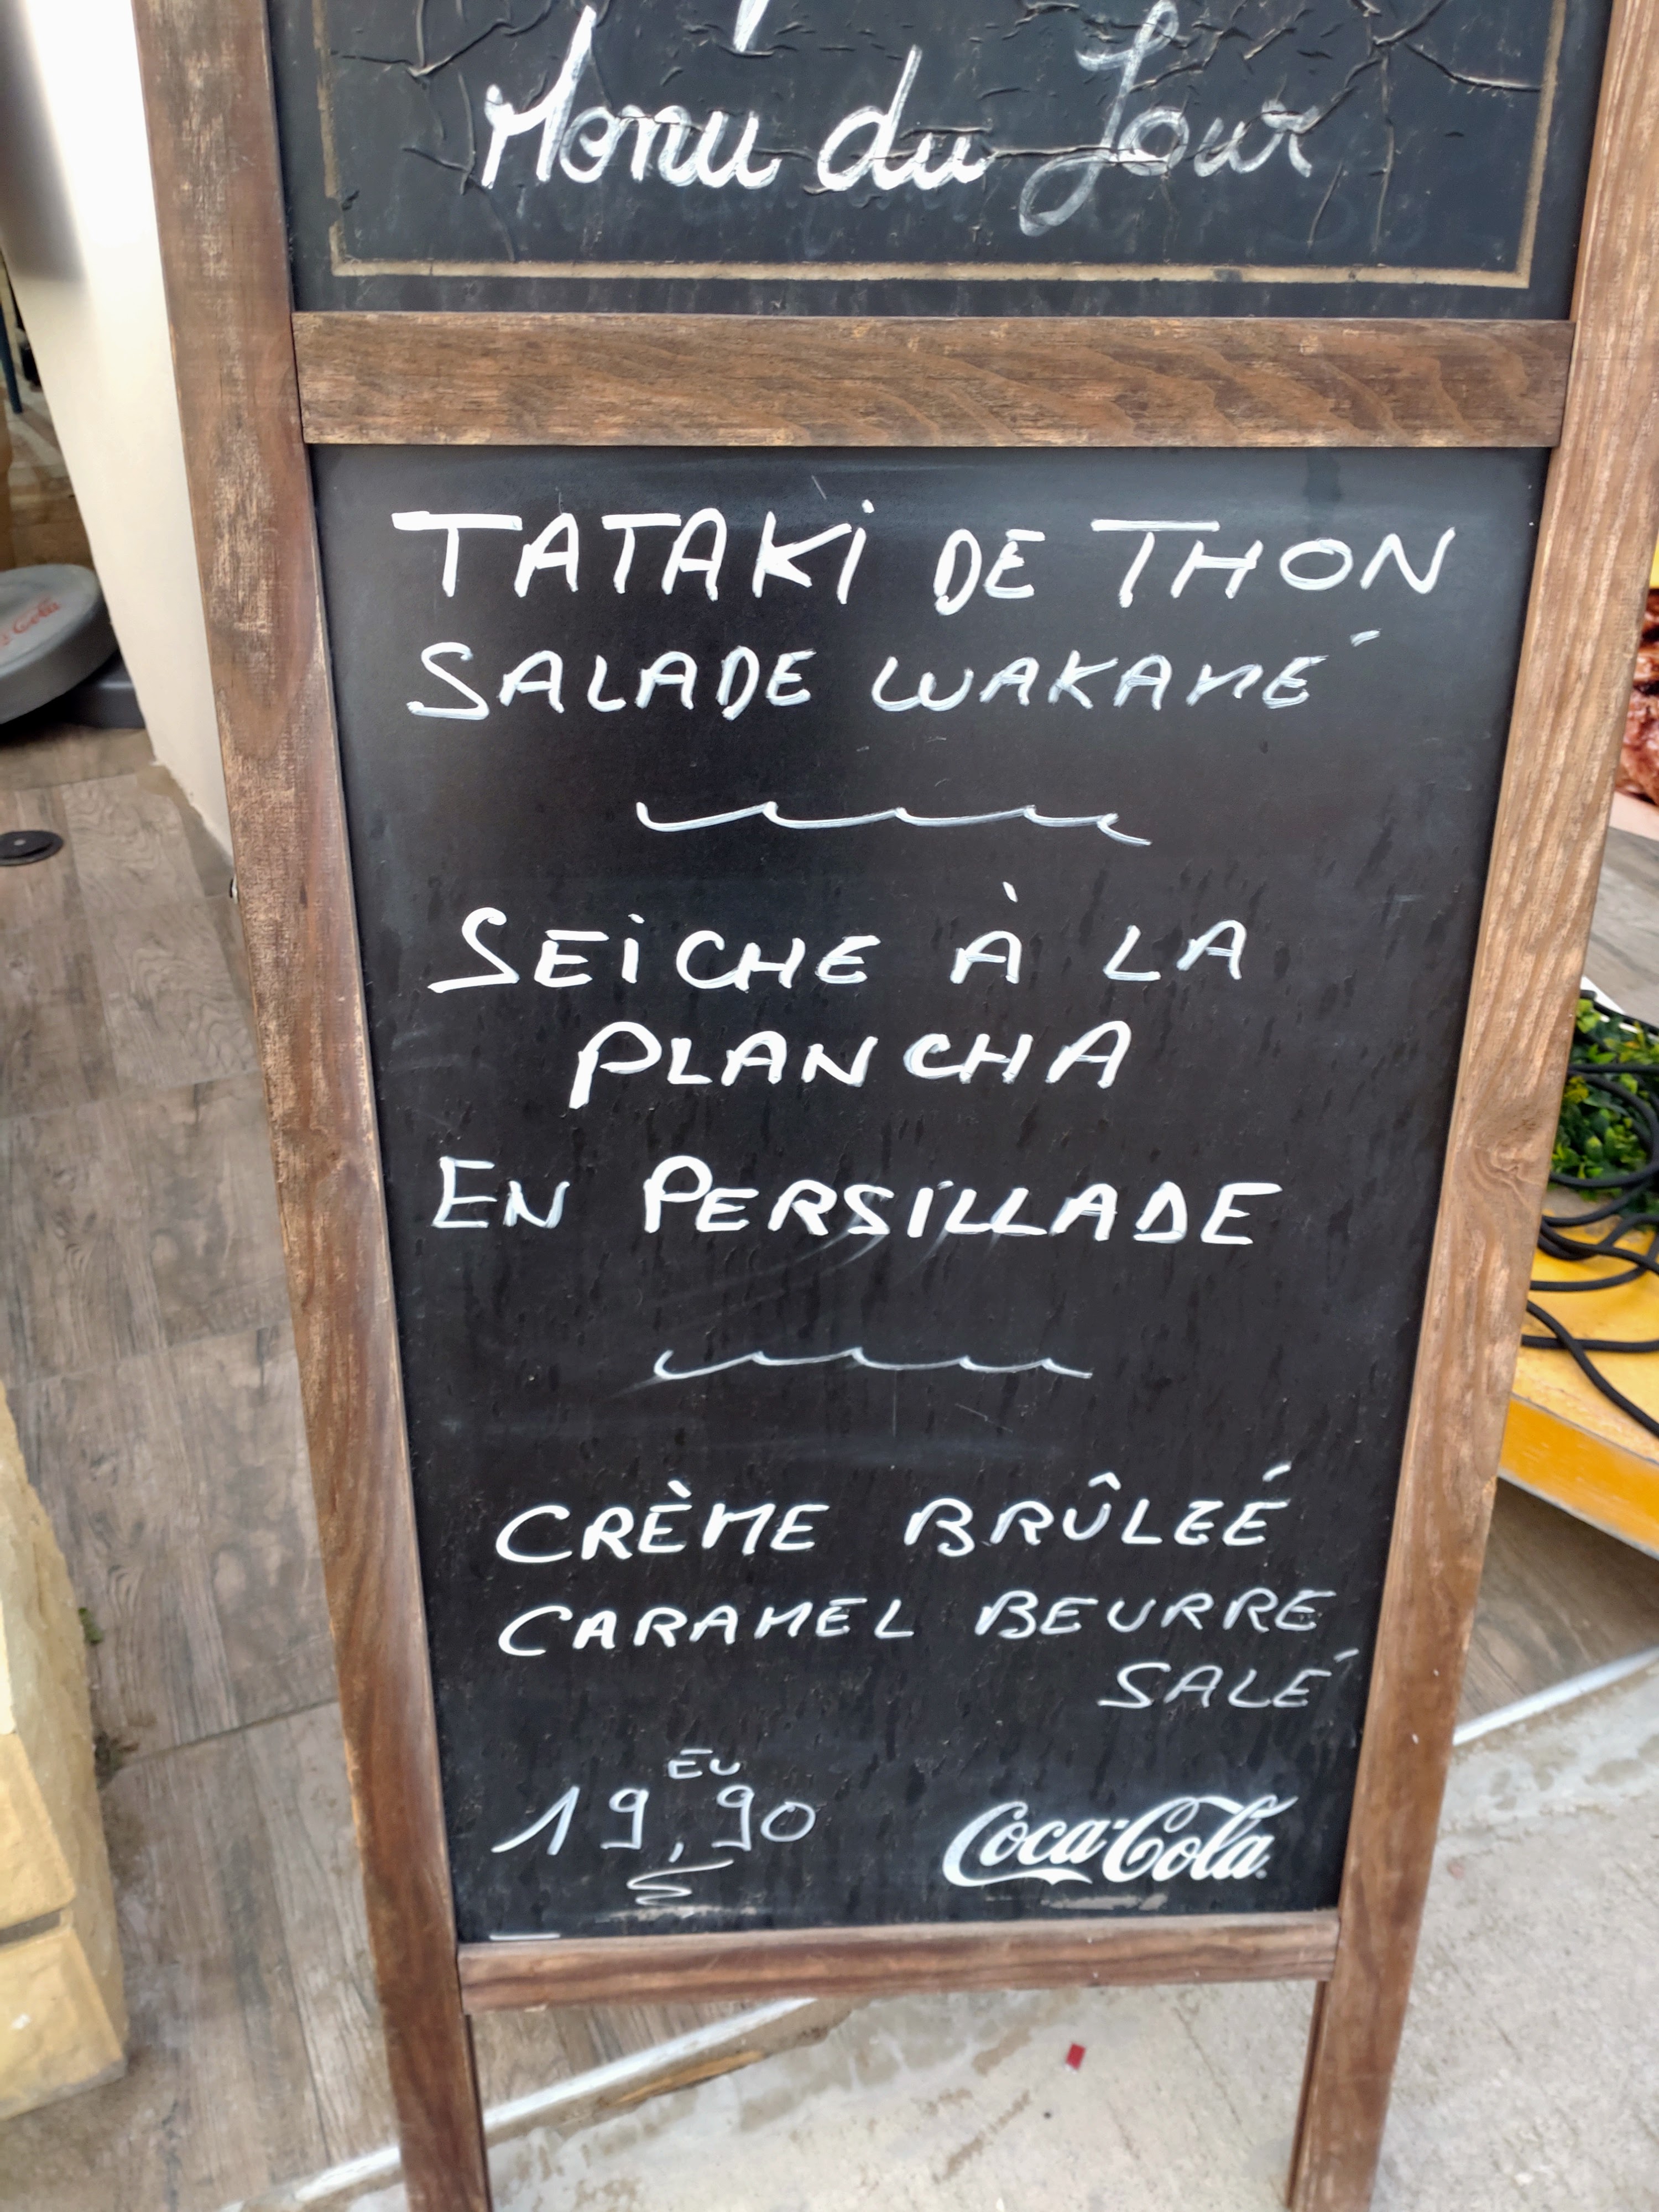 Menu du Jour
TATAKI DE THON
SALADE WAKAMÉ
SEICHE À LA
PLANCHA
EN PERSILLADE
CRÈME BRÛLÉÉ
CARAMEL BEURRE
SALÉ
EU
19,90
Coca-Cola